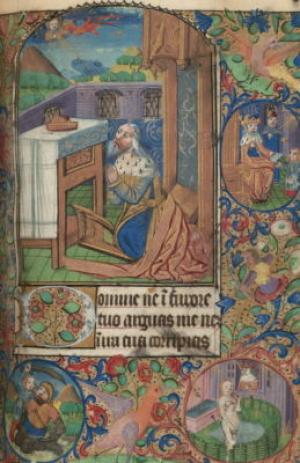 Domine ne ĩ furore
tuo arguas me ne
ĩ ira tua corripias